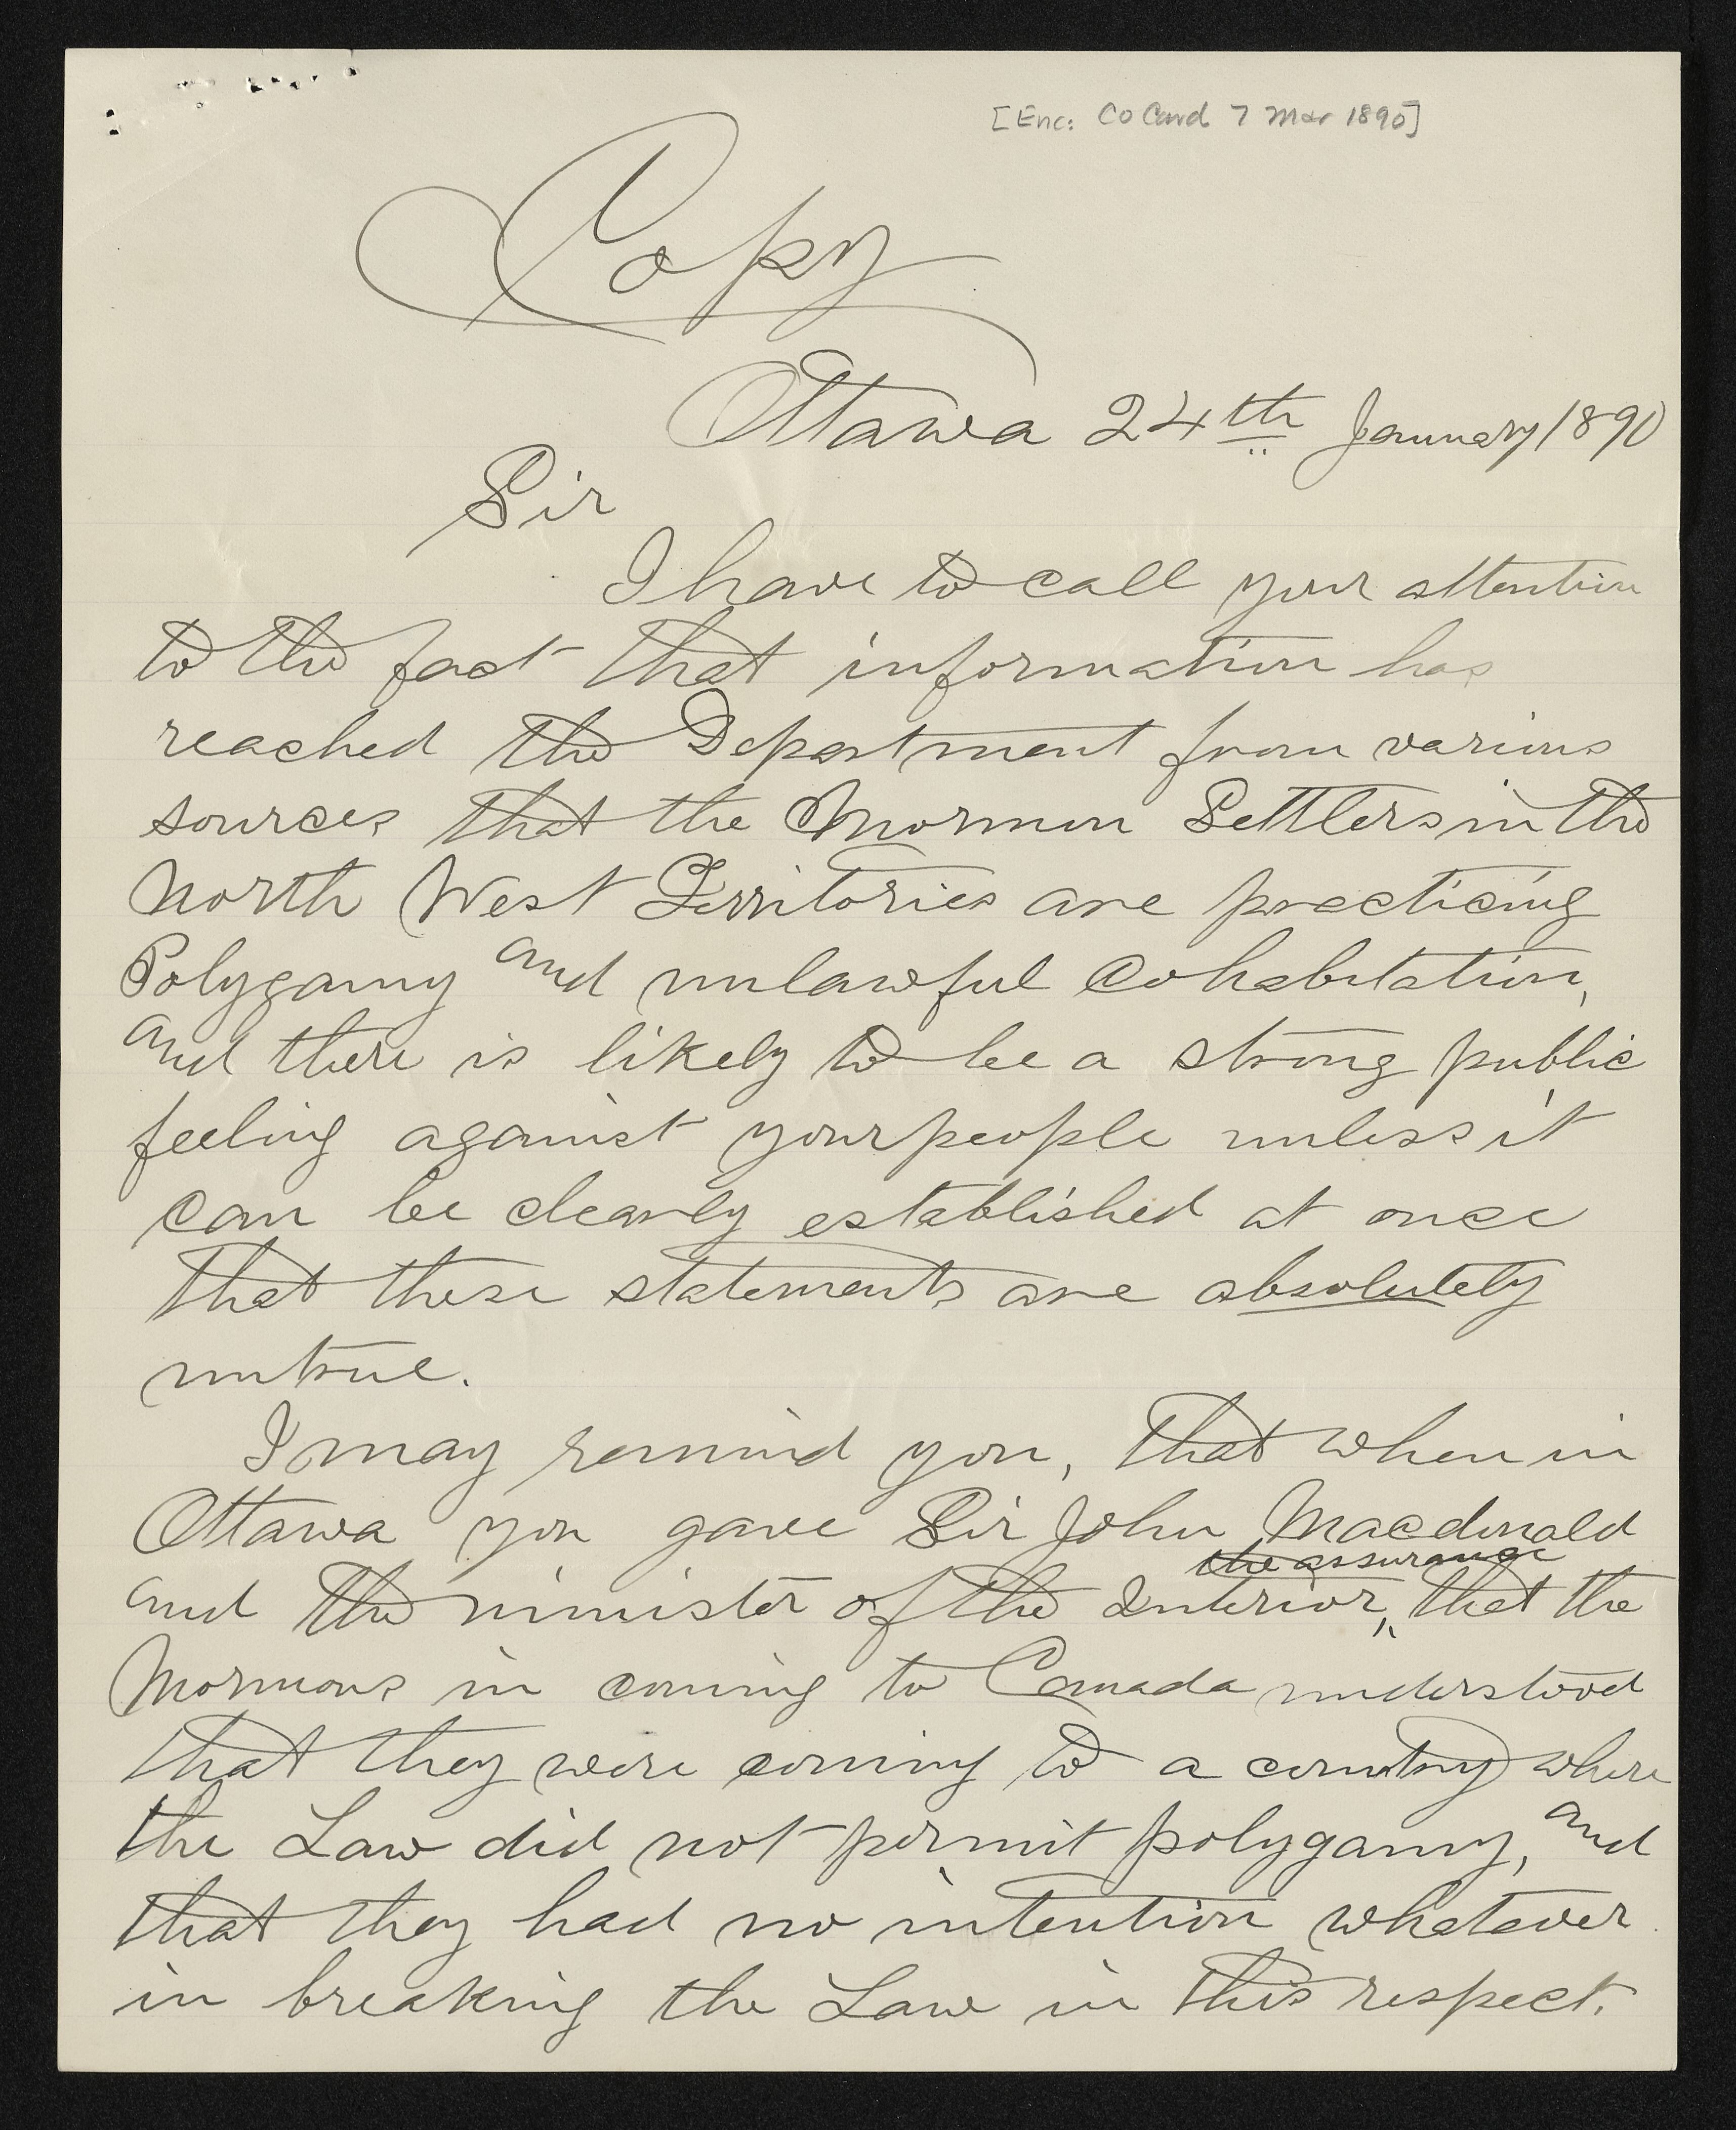 [Enc: CO Card 7 Mar 1890]
Copy
Ottawa 24th January 1890
Sir
I have to call your attention
to the fact that information has
reached the Department from various
sources that the Mormon Settlers in the
North West Territories are practicing
Polygamy and unlawful Cohabitation,
and there is likely to be a strong public
feeling against your people unless it
can be clearly established at once
that these statements are absolutely
untrue.
I may remind you, that when in
Ottawa you gave Sir John Macdonald
the assurance
and the minister of the Interior, that the
Mormons in coming to Canada understood
that they were coming to a country where
the Law did not permit polygamy, and
that they had no intention whatever
in breaking the Law in this respect.